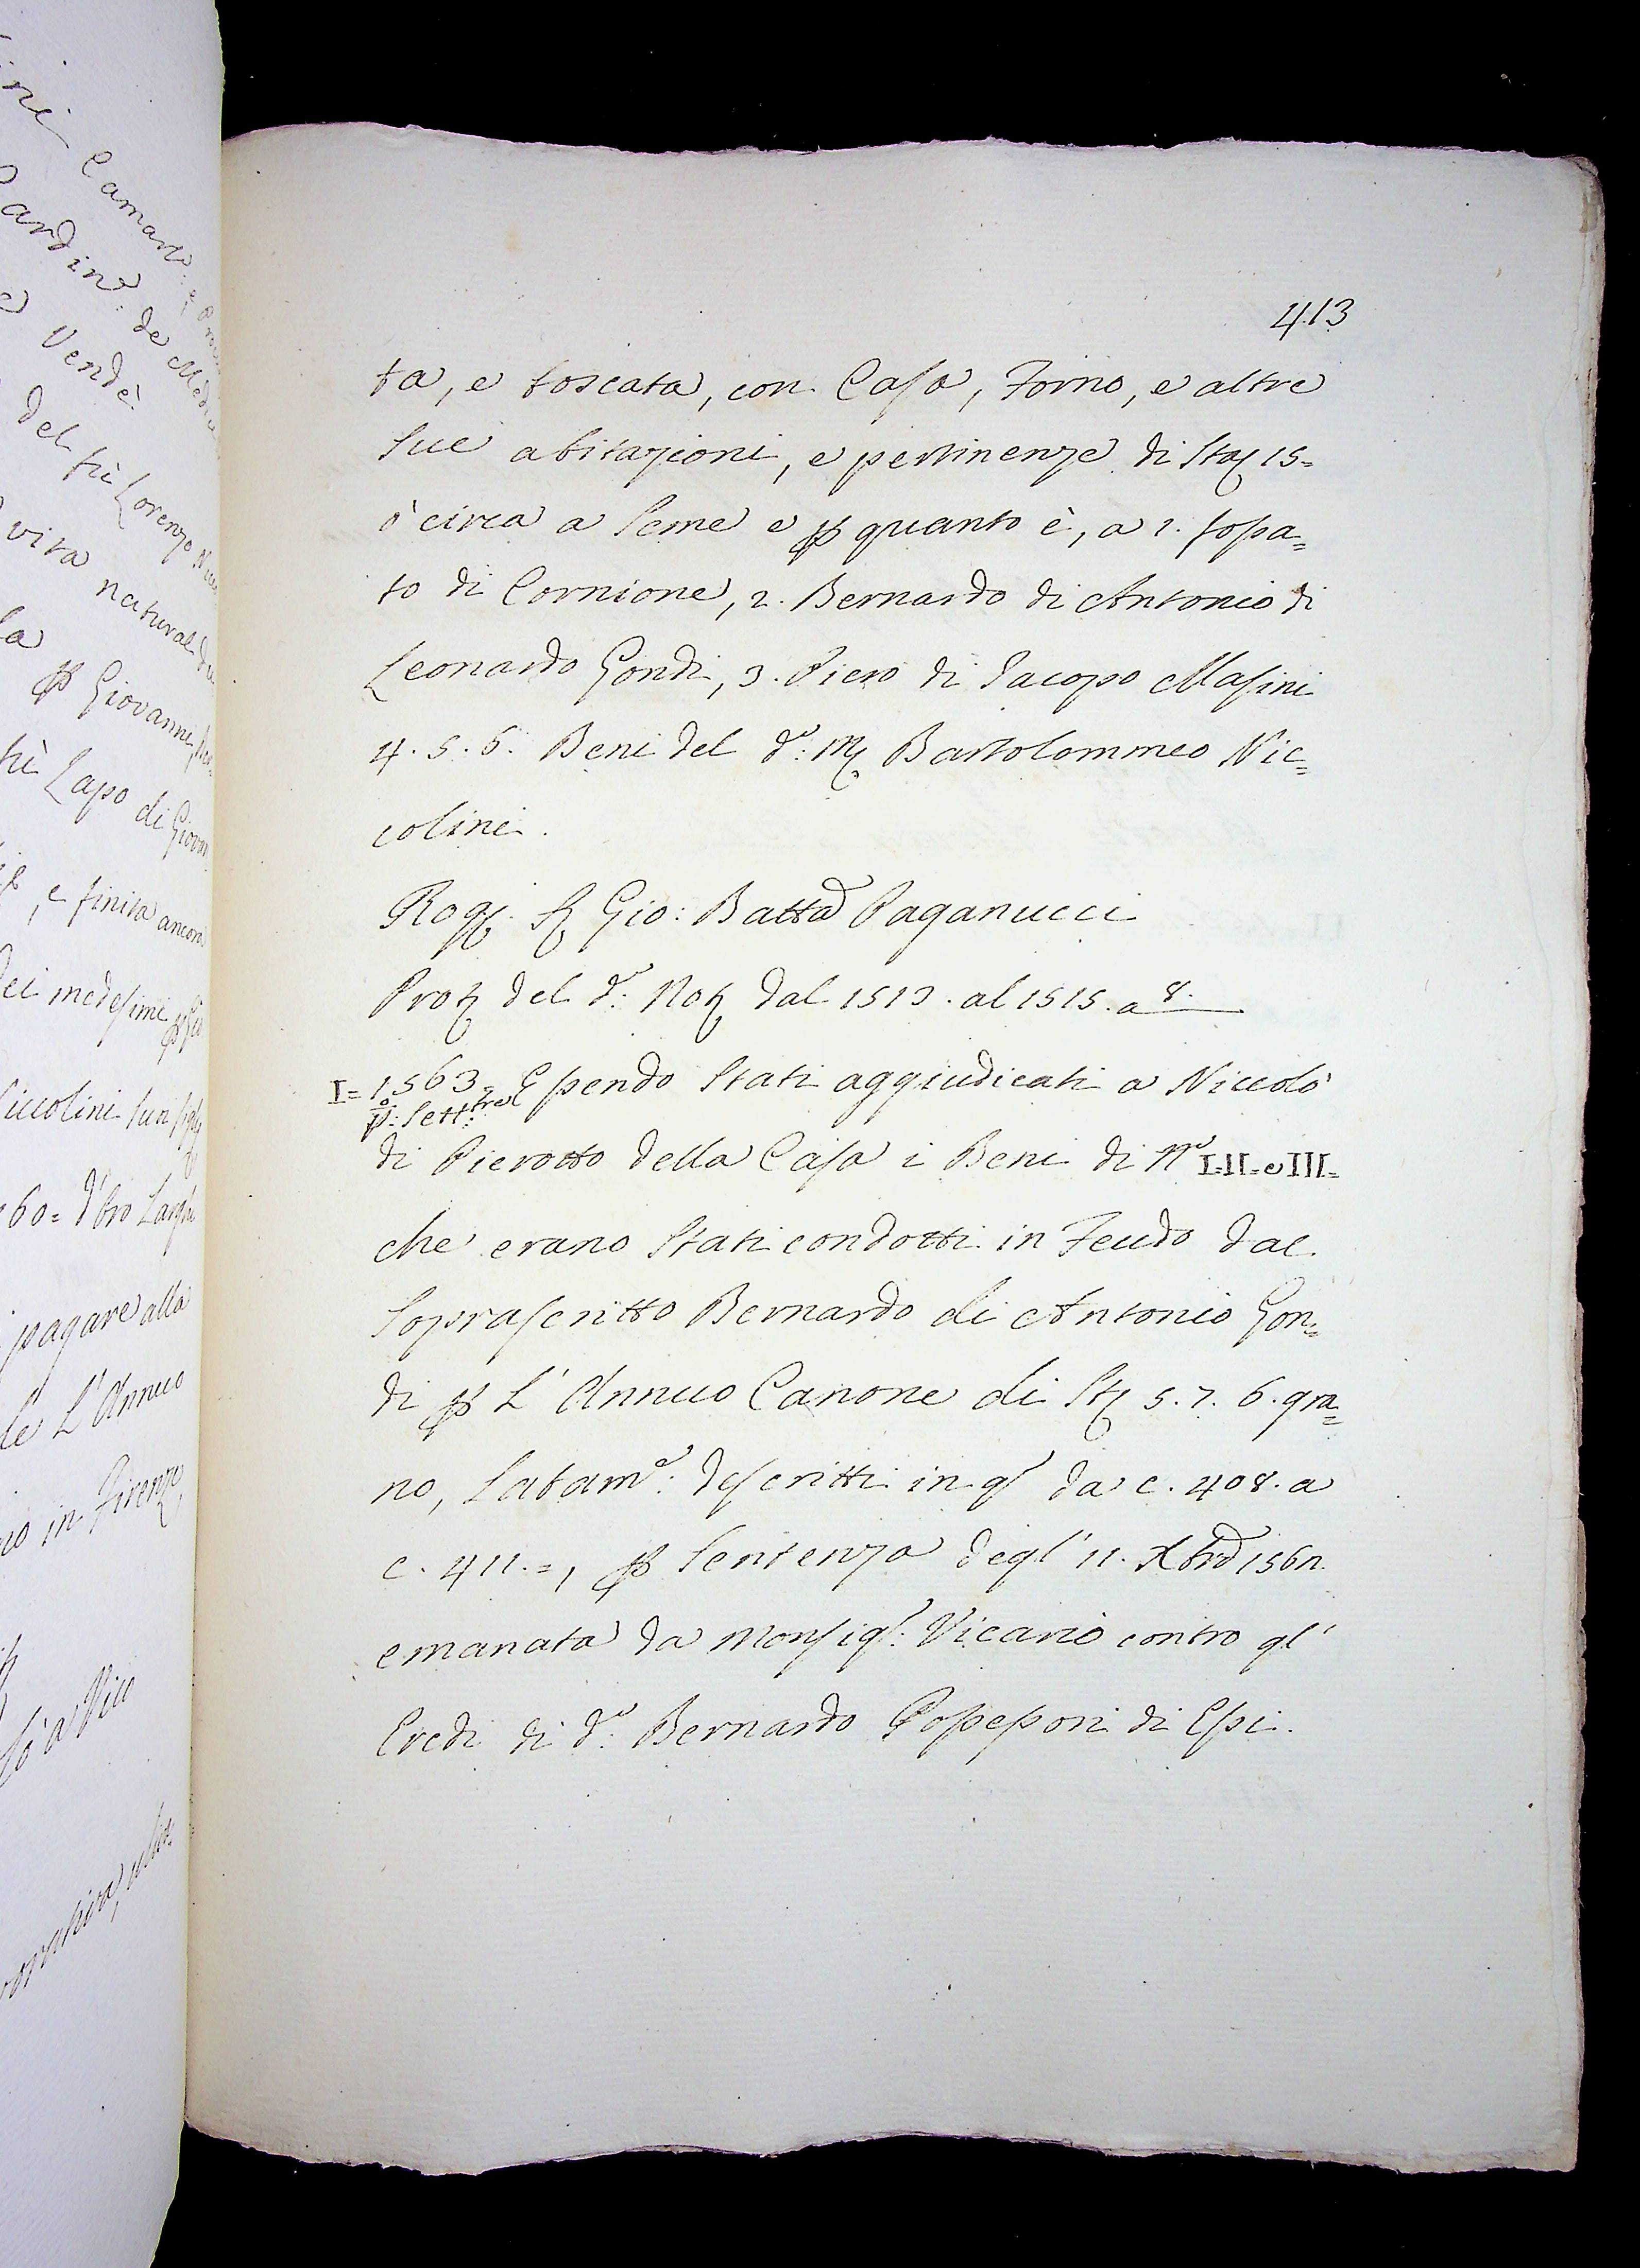 413
ta, e boscata, con Casa, Forno, e altre
Sue abitazioni, e pertinenze di Sta 15=
ò circa a Seme e p quanto è, a 1. fossa=
to di Cornione, 2. Bernardo di Antonio di
Leonardo Gondi, 3. Piero di Jacopo Masini
4. 5. 6. Beni del do: M Bartolommeo Nic=
colini.
Rog. S Gio: Batta Paganucci
Prot del do: Not dal 1513. al 1515. a 8.
I= 1563= Essendo Stati aggiudicati a Niccolò
po: Settbre
di Pierotto della Casa i Beni di No I=II= e III=
che erano Stati condotti in Feudo dal
Soprascritto Bernardo di Antonio Gon=
di p L' Annuo Canone di St 5. 7. 6. gra=
no, Latame: descritti in q da c. 408. a
c. 411.=, p Sentenza degl' 11. Xbre 156
emanata da Monsigr: Vicario contro gl'
Eredi di do: Bernardo Possessori di Essi.
Vendè
del fù Lorenzo
vita natural
p Giovanni
fù Lapo di Giovan
, e finita ancora
dei medesimi
iccolini suoi
60= d'Oro Larghi
pagare alla
le L'Annuo
in Firenze